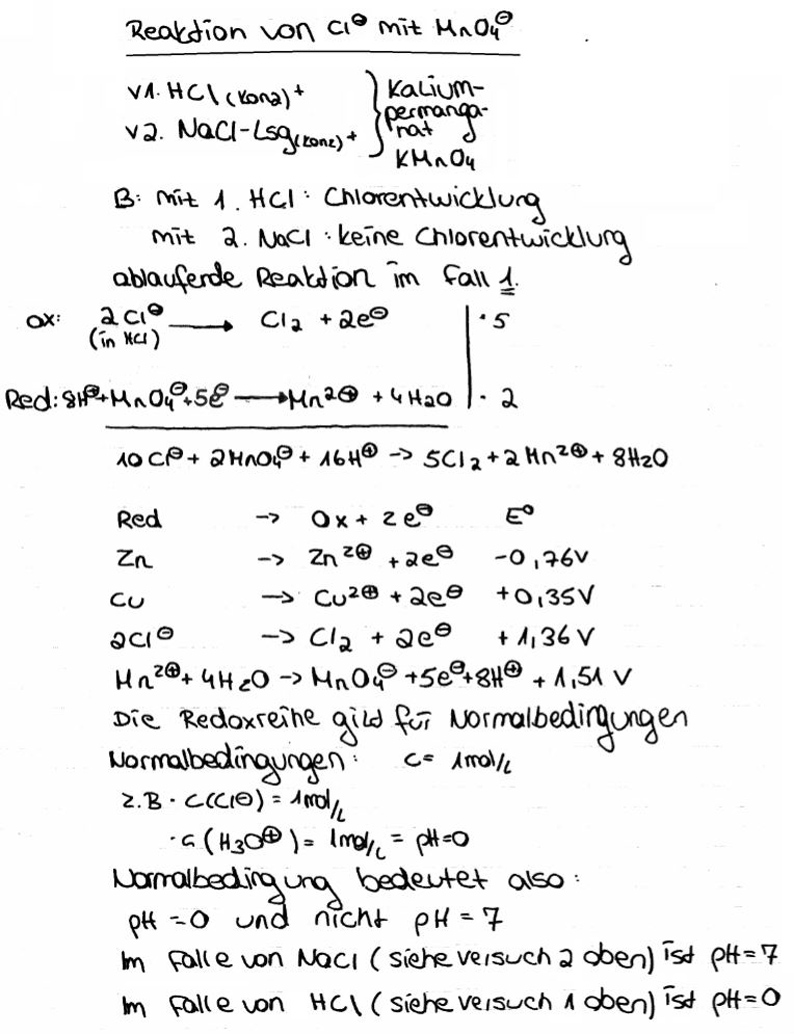 Reaktion von Cl⊖ mit MnO₄⊖
V1. HCl (konz) + } Kalium-
V2. NaCl-Lsg (konz) + } permanga-
nat
KMnO₄
B: mit 1. HCl: Chlorentwicklung
mit 2. NaCl: keine Chlorentwicklung
ablaufende Reaktion im Fall 1.
Ox: 2Cl⊖ → Cl₂ + 2e⊖ | · 5
(in HCl)
Red: 8H⊕ + MnO₄⊖ + 5e⊖ → Mn²⊕ + 4H₂O | · 2
10Cl⊖ + 2MnO₄⊖ + 16H⊕ -> 5Cl₂ + 2Mn²⊕ + 8H₂O
Red -> Ox + ze⊖ E⁰
Zn -> Zn²⊕ + 2e⊖ -0,76V
Cu -> Cu²⊕ + 2e⊖ +0,35V
2Cl⊖ -> Cl₂ + 2e⊖ +1,36V
Mn²⊕ + 4H₂O -> MnO₄⊖ + 5e⊖ + 8H⊕ +1,51V
Die Redoxreihe gild für Normalbedingungen
Normalbedingungen: c= 1mol/L
z.B · c(Cl⊖) = 1mol/L
· c(H₃O⊕) = 1mol/L = pH=0
Normalbedingung bedeutet also:
pH=0 und nicht pH=7
Im Falle von NaCl (siehe Versuch 2 oben) ist pH=7
Im Falle von HCl (siehe Versuch 1 oben) ist pH=0